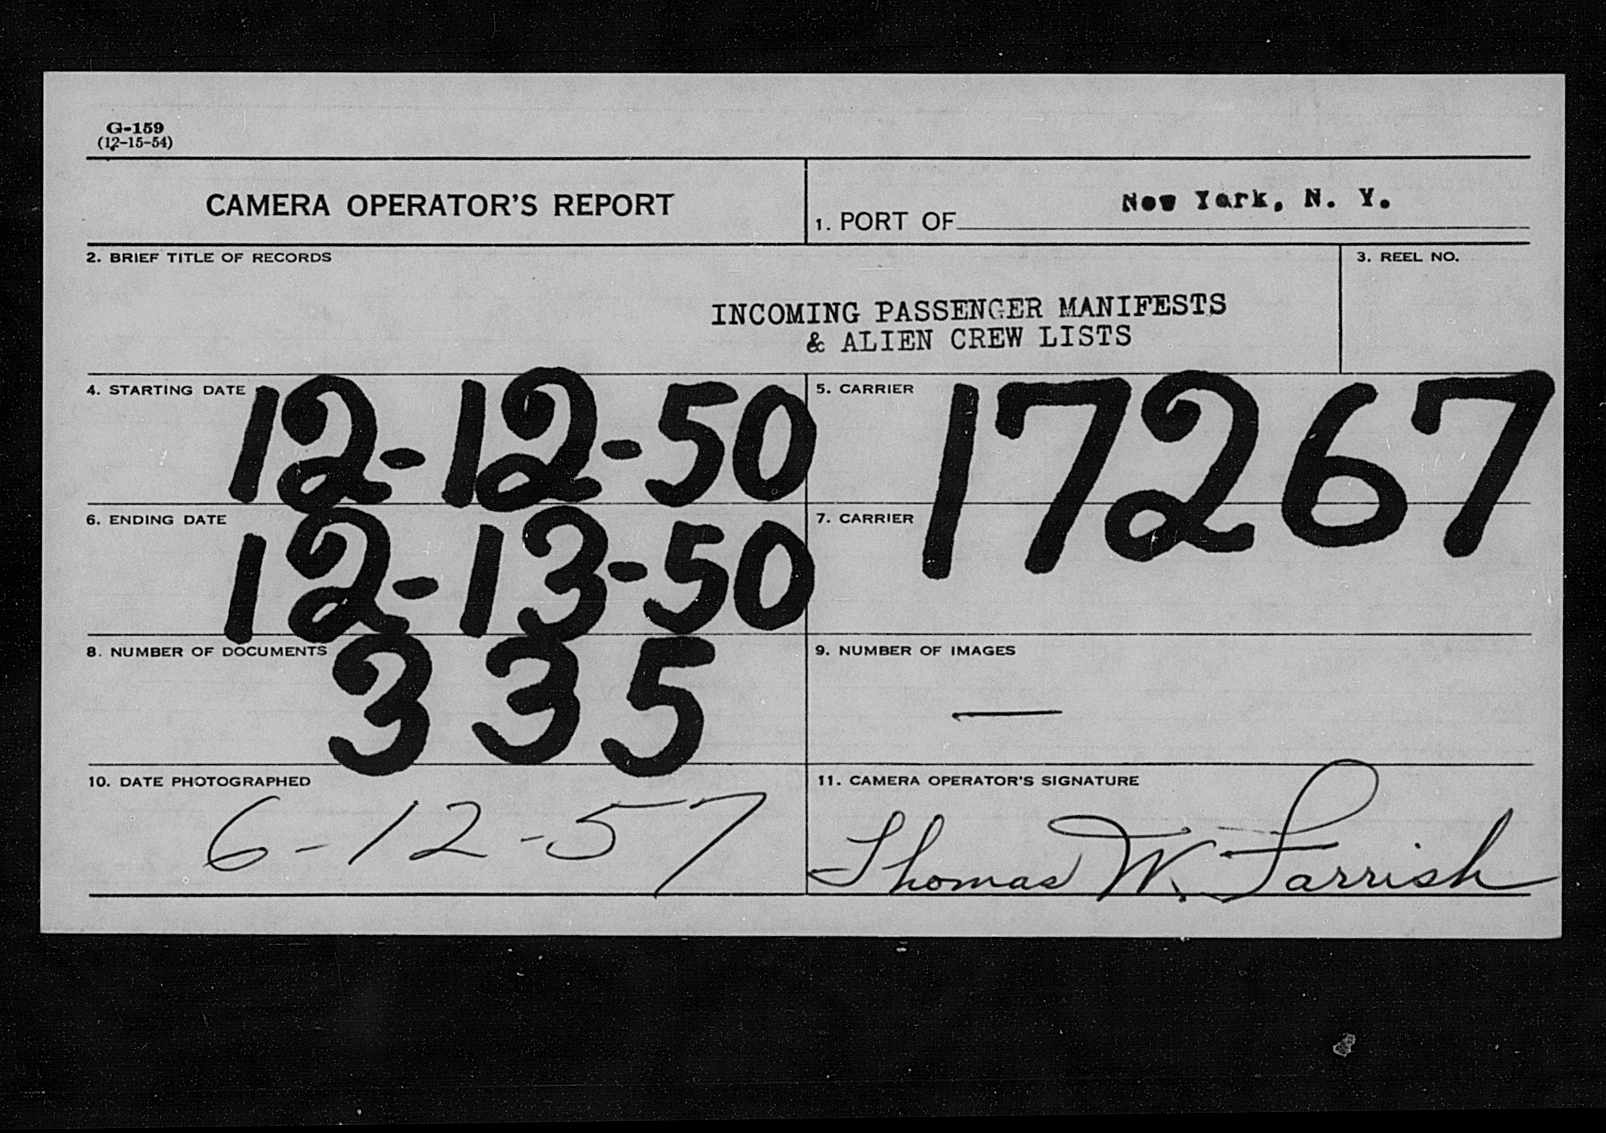 G-159
(12-15-54)
CAMERA OPERATOR'S REPORT
1. PORT OF New York, N. Y.
2. BRIEF TITLE OF RECORDS
INCOMING PASSENGER MANIFESTS
& ALIEN CREW LISTS
3. REEL NO.
4. STARTING DATE 12-12-50
5. CARRIER 17267
6. ENDING DATE 12-13-50
7. CARRIER
8. NUMBER OF DOCUMENTS 335
9. NUMBER OF IMAGES —
10. DATE PHOTOGRAPHED
6-12-57
11. CAMERA OPERATOR'S SIGNATURE
Thomas W. Farrish